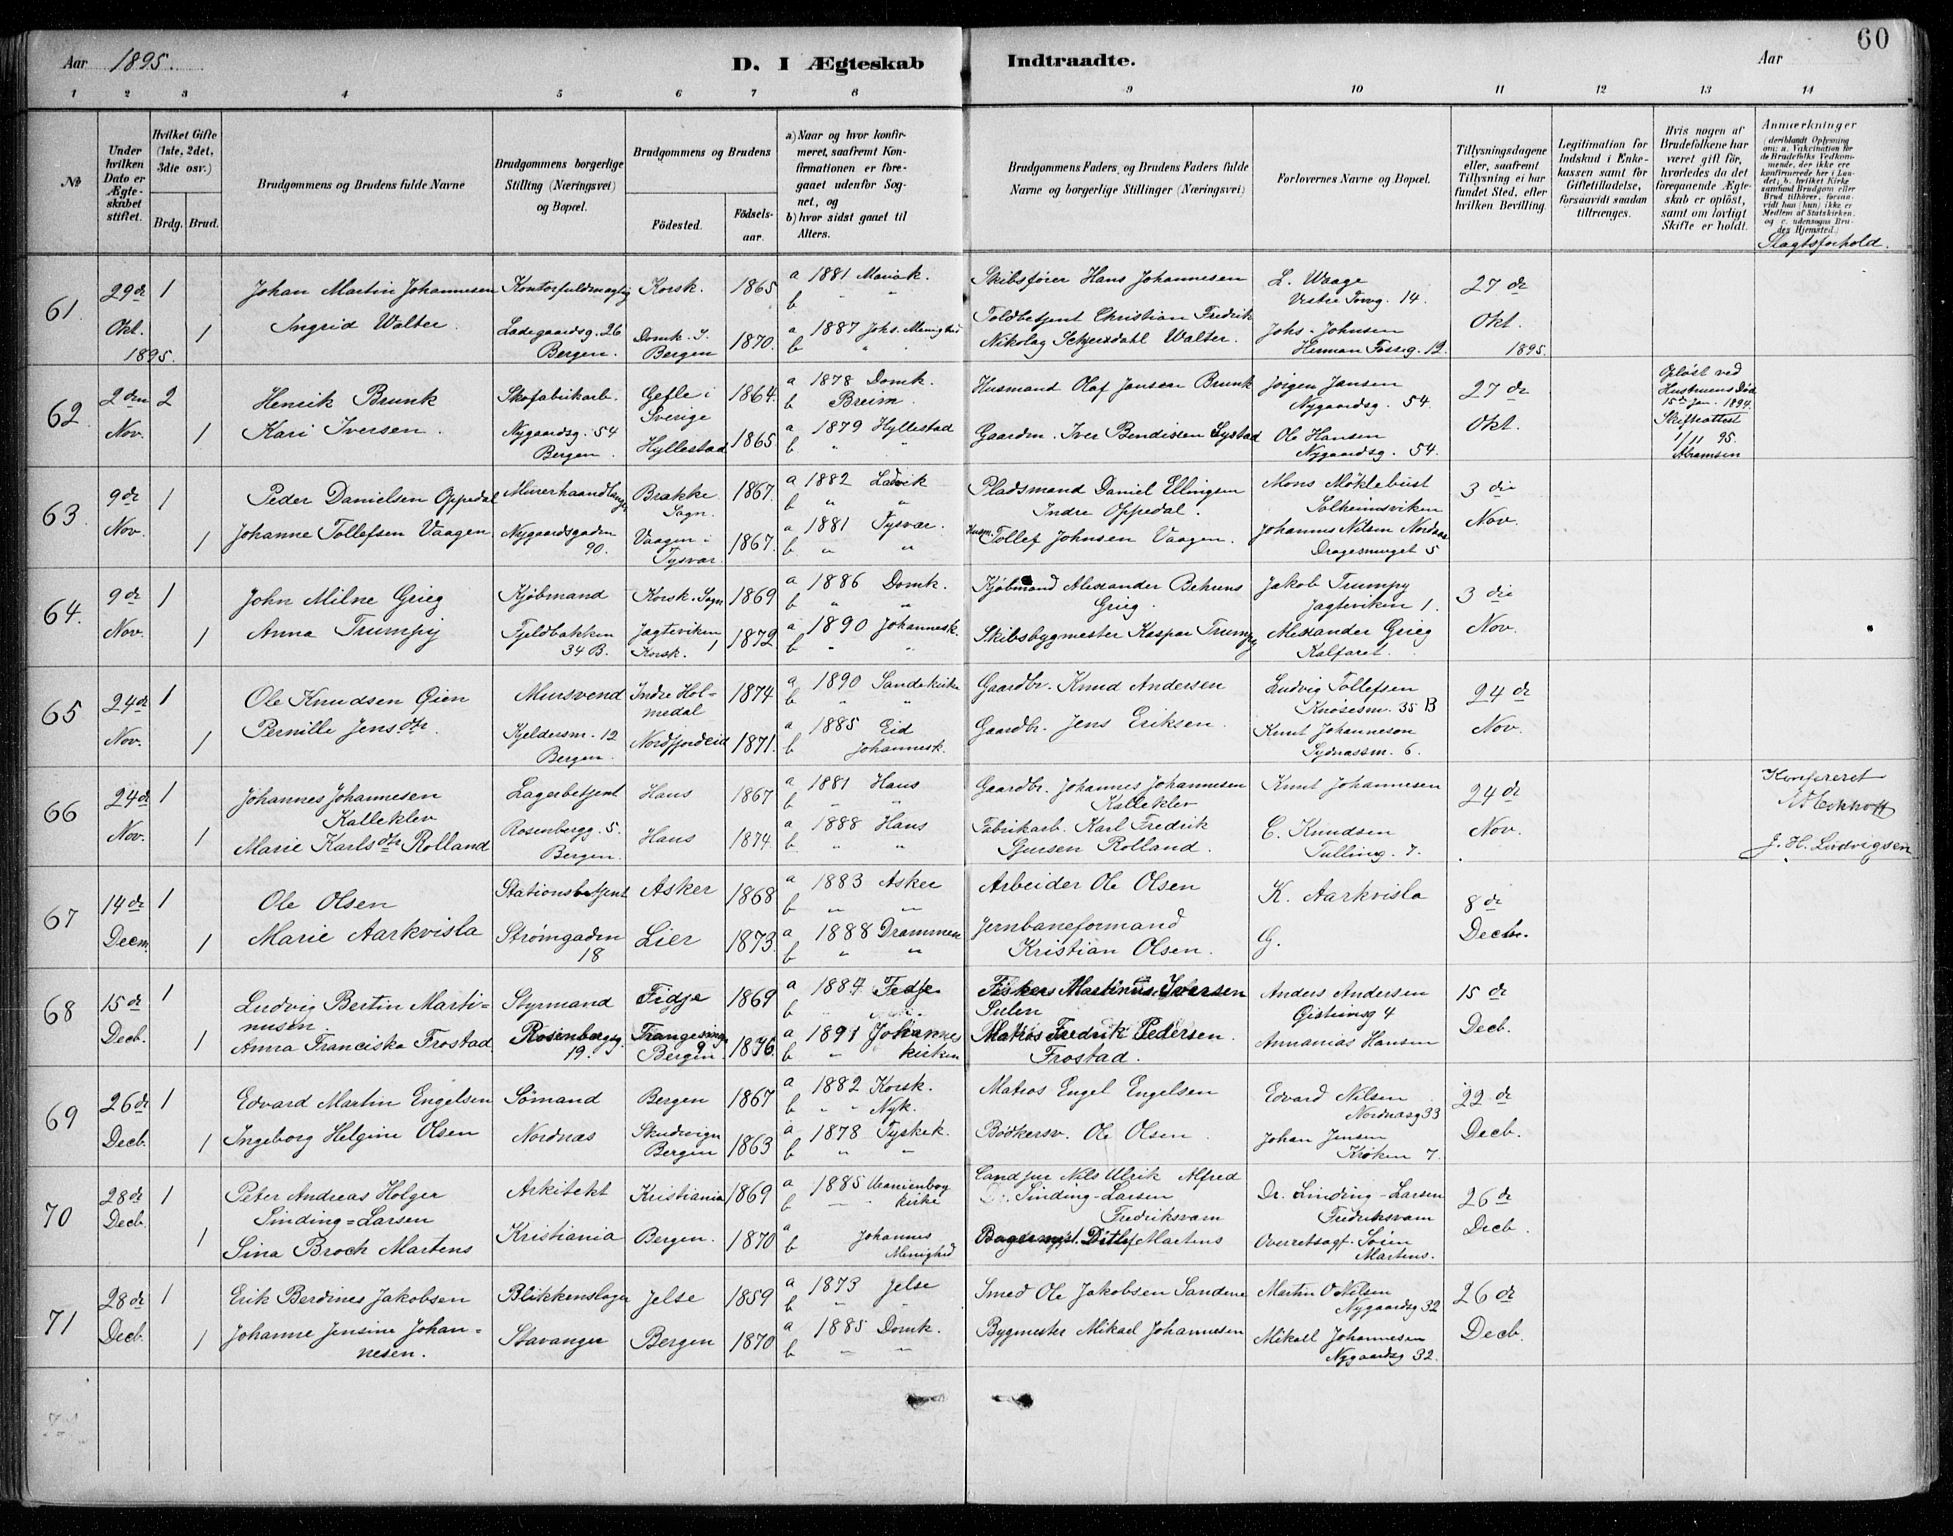 60
Aar 1895.
D. I Ægteskab Indtraadte.
Aar
1 2 3 4 5 6 7 8 9 10 11 12 13 14
No
Under hvilken Dato er Ægteskabet stiftet.
Hvilket Gifte (1ste, 2det, 3die osv.)
Brdg. Brud.
Brudgommens og Brudens fulde Navne
Brudgommens borgerlige Stilling (Næringsvei) og Bopæl.
Brudgommens og Brudens
Fødested.
Fødselsaar.
a) Naar og hvor konfirmeret, saafremt Konfirmationen er foregaaet udenfor Sognet, og
b) hvor sidst gaaet til Alters.
Brudgommens Faders og Brudens Faders fulde Navne og borgerlige Stillinger (Næringsvei)
Forlovernes Navne og Bopæl.
Tillysningsdagene eller, saafremt Tillysning ei har fundet Sted, efter hvilken Bevilling.
Legitimation for Indskud i Enkekassen samt for Giftetilladelse, forsaavidt saadan tiltrænges.
Hvis nogen af Brudefolkene har været gift før, hvorledes da det foregaaende Ægteskab er opløst, samt om lovligt Skifte er holdt.
Anmærkninger (deriblandt Oplysning om: a. Vakcination for de Brudefolks Vedkommende, der ikke ere konfirmerede her i Landet; b. hvilket Kirkesamfund Brudgom eller Brud tilhører, forsaavidt han (hun) ikke er Medlem af Statskirken, og c. udensogns Brudes Hjemsted.)
Slægtsforhold.
61. 29de 1 Johan Martin Johannesen Kontorfuldmægtig Korsk. 1865 a 1881 Mariæk. Skibsfører Hans Johannesen L. Waage 27de
b " " Vestre Torvg. 14.
Okt. 1895. 1 Ingrid Walter. Ladegaardsg. 26 Bergen. Domk. S. Bergen 1870. a 1887 Johs. Menighed Toldbetjent Christian Fredrik Johs. Johnsen Okt.
b " " Nikolay Schjerdahl Walter. Herman Fossg. 12. 1895.
62 2den 2 Henrik Brunk Skofabrikarb. Gefle i Sverige 1864. a 1878 Domk. Husmand Olaf Jansen Brunk Jørgen Jansen 27de Opløst ved Hustruens Død 15de Jan. 1894.
b Breim Nygaardsg. 54.
Nov. 1 Kari Iversen. Nygaardsg. 54 Bergen. Hyllestad 1865 a 1879 Hyllestad Gaardm. Iver Bendixen Systad Ole Hansen Okt. Skifteattest 1/11 95. Abramsen
b " " Nygaardsg. 54.
63. 9de 1 Peder Danielsen Oppedal Murerhaandlanger Brække Sogn. 1867. a 1882 Ladvik Pladsmand Daniel Ellingsen Mons Møklebust 3die
b " " Indre Oppedal. Solheimsviken
Nov. 1 Johanne Tollefsen Vaagen Nygaardsgaden 90. Vaagen i Tysvær. 1867. a 1881 Tysvær. Husm. Tollef Johnsen Vaagen. Johannes Nilsen Nordaas Nov.
b " " Dragesmuget 5
64. 9de 1 John Milne Grieg Kjøbmand Korsk. Sogn 1869 a 1886 Domk. Kjøbmand Alexander Behrens Grieg. Jakob Trumpy 3die
b " " Jægteviken 1.
Nov. 1 Anna Trumpy Fjeldbakken 34 B. Jægteviken 1 Korsk. 1872 a 1890 Johannesk. Skibsbygmester Kaspar Trumpy Alexander Grieg Nov.
b " " Kalfaret.
65 24de 1 Ole Knudsen Øien Mursvend Indre Holmedal 1874 a 1890 Sandekirke Gaardbr. Knud Andersen Ludvig Tollefsen 24de
b " " Knøsesm. 35 B
Nov. 1 Pernille Jensdtr. Kjeldersm. 12 Bergen. Nordfjordeid 1871. a 1885 Eid Gaardbr. Jens Eriksen. Knut Johanneson Nov.
b Johannesk. Sydnæssm. 6.
66 24de 1 Johannes Johannesen Kalleklev Lagerbetjent Haus 1867 a 1881 Haus Gaardbr. Johannes Johannesen Kalleklev Knut Johannesen 24de Konfereret
b " "
Nov. 1 Marie Karlsdtr Rolland Rosenbergg. 5. Bergen. Haus 1874. a 1888 Haus Fabrikarb. Karl Fredrik Sjursen Rolland. C. Knudsen Nov. J. H. Ludvigsen
b " " Tulling. 7.
67 14de 1 Ole Olsen Stationsbetjent Asker 1868 a 1883 Asker Arbeider Ole Olsen K. Aarkvisla 8de
b " "
Decm. 1 Marie Aarkvisla Strømgaden 18 Lier 1873. a 1888 Drammen Jernbaneformand Kristian Olsen. G. Decbr.
b " "
68 15de 1 Ludvig Bertin Martinusen Styrmand Fidje 1869 a 1884 Fedje Fisker Martinus Iversen Sulen Anders Andersen 15de
b
Decb. 1 Anna Franciska Frostad Rosenbergsg. 19. Trangesmug 9 Bergen. 1876. a 1891 Johanneskirken Matros Fredrik Pedersen Frostad. Annanias Hansen Decb.
b "
69 26de 1 Edvard Martin Engelsen Sømand Bergen 1867 a 1882 Korsk. Matros Engel Engelsen Edvard Nilsen 22de
b " " Nyk. Nordnæsg 33
Decb. 1 Ingeborg Helgine Olsen Nordnæs Skudevign Bergen 1863 a 1878 Tyskek. Bødkersv. Ole Olsen. Johan Jensen Decb.
b " " Krøken 7.
70 28de 1 Peter Andreas Holger Sinding=Larsen Arkitekt Kristiania 1869 a 1885 Uranienborg kirke Cand jur Nils Ulrik Alfred Sinding-Larsen Fredriksværn Dr. Sinding-Larsen Fredriksværn 26de
b
Decb. 1 Sina Broch Martens Kristiania Bergen. 1870 a Johannes Menighed Bagermst. Ditlef Martens Overretssagf. Søren Martens. Decb.
b
71 28de 1 Erik Berdines Jakobsen Blikkenslager Jelse 1859 a 1873 Jelse Smed Ole Jakobsen Sandene Martin O Nilsen 26de
b " " Nygaardsg 32
Decb. 1 Johanne Jensine Johannesen. Stavanger Bergen 1870 a 1885 Domk. Bygmester Mikael Johannesen Mikael Johannesen Decb.
b " " Nygaardsg 32.